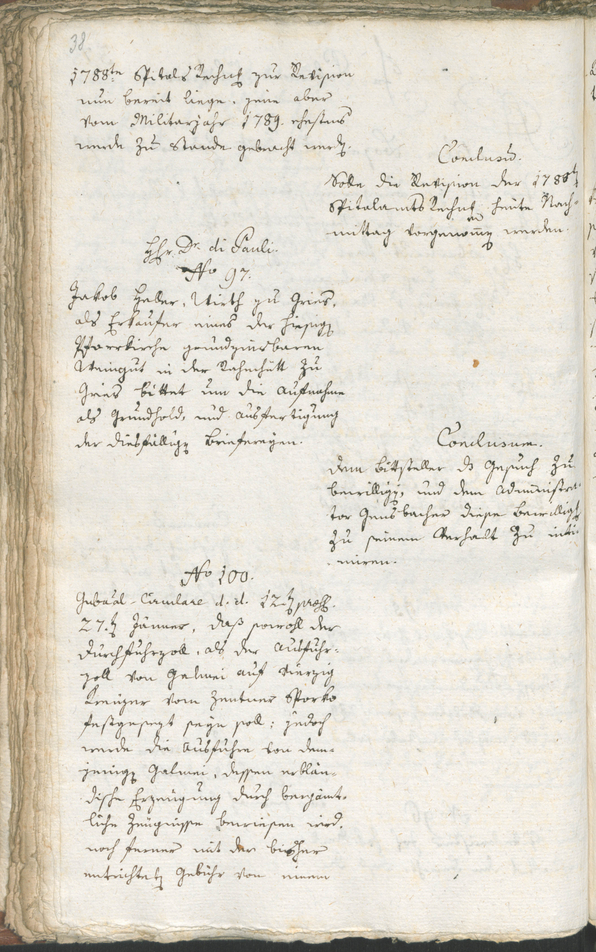 38
1788te Spitals Rechnung zur Revision
nun bereit liege. jene aber
vom Militarjahr 1789. ehestens
werde zu Stande gebracht werden.
Conclusum.
Solle die Revision der 1788te
Spitalamts Rechnung heute Nach-
mittag vorgenommen werden.
Hr. Dr. di Pauli.
No 97.
Jakob Haber, Wirth zu Gries,
als Erkäufer eines der hiesigen
Pfarrkirche grundzinsbaren
Weingut in der zu
Gries bittet um die Aufnahme
als Grundhold, und Ausfertigung
der diesfälligen Briefereyen.
Conclusum.
Dem Bittsteller das Gesuch zu
bewilligen, und dem Administra-
tor diese Bewilligung
zu seinem Verhalt zu inti-
miren.
No 100.
Gubernial-Circulare d. d. 12. pres.
27. Jänner, daß sowohl der
Durchfuhrzoll, als der Ausfuhr-
zoll von Galmei auf vierzig
Kreuzer vom Zentner Sporko
festgesezt seyn soll; jedoch
werde die Ausfuhr von dem-
jenigen Galmei, dessen erblän-
dische Erzeugung durch bergämt-
liche Zeugnisse bewiesen wird,
noch ferner mit der bisher
entrichteten Gebühr von einem